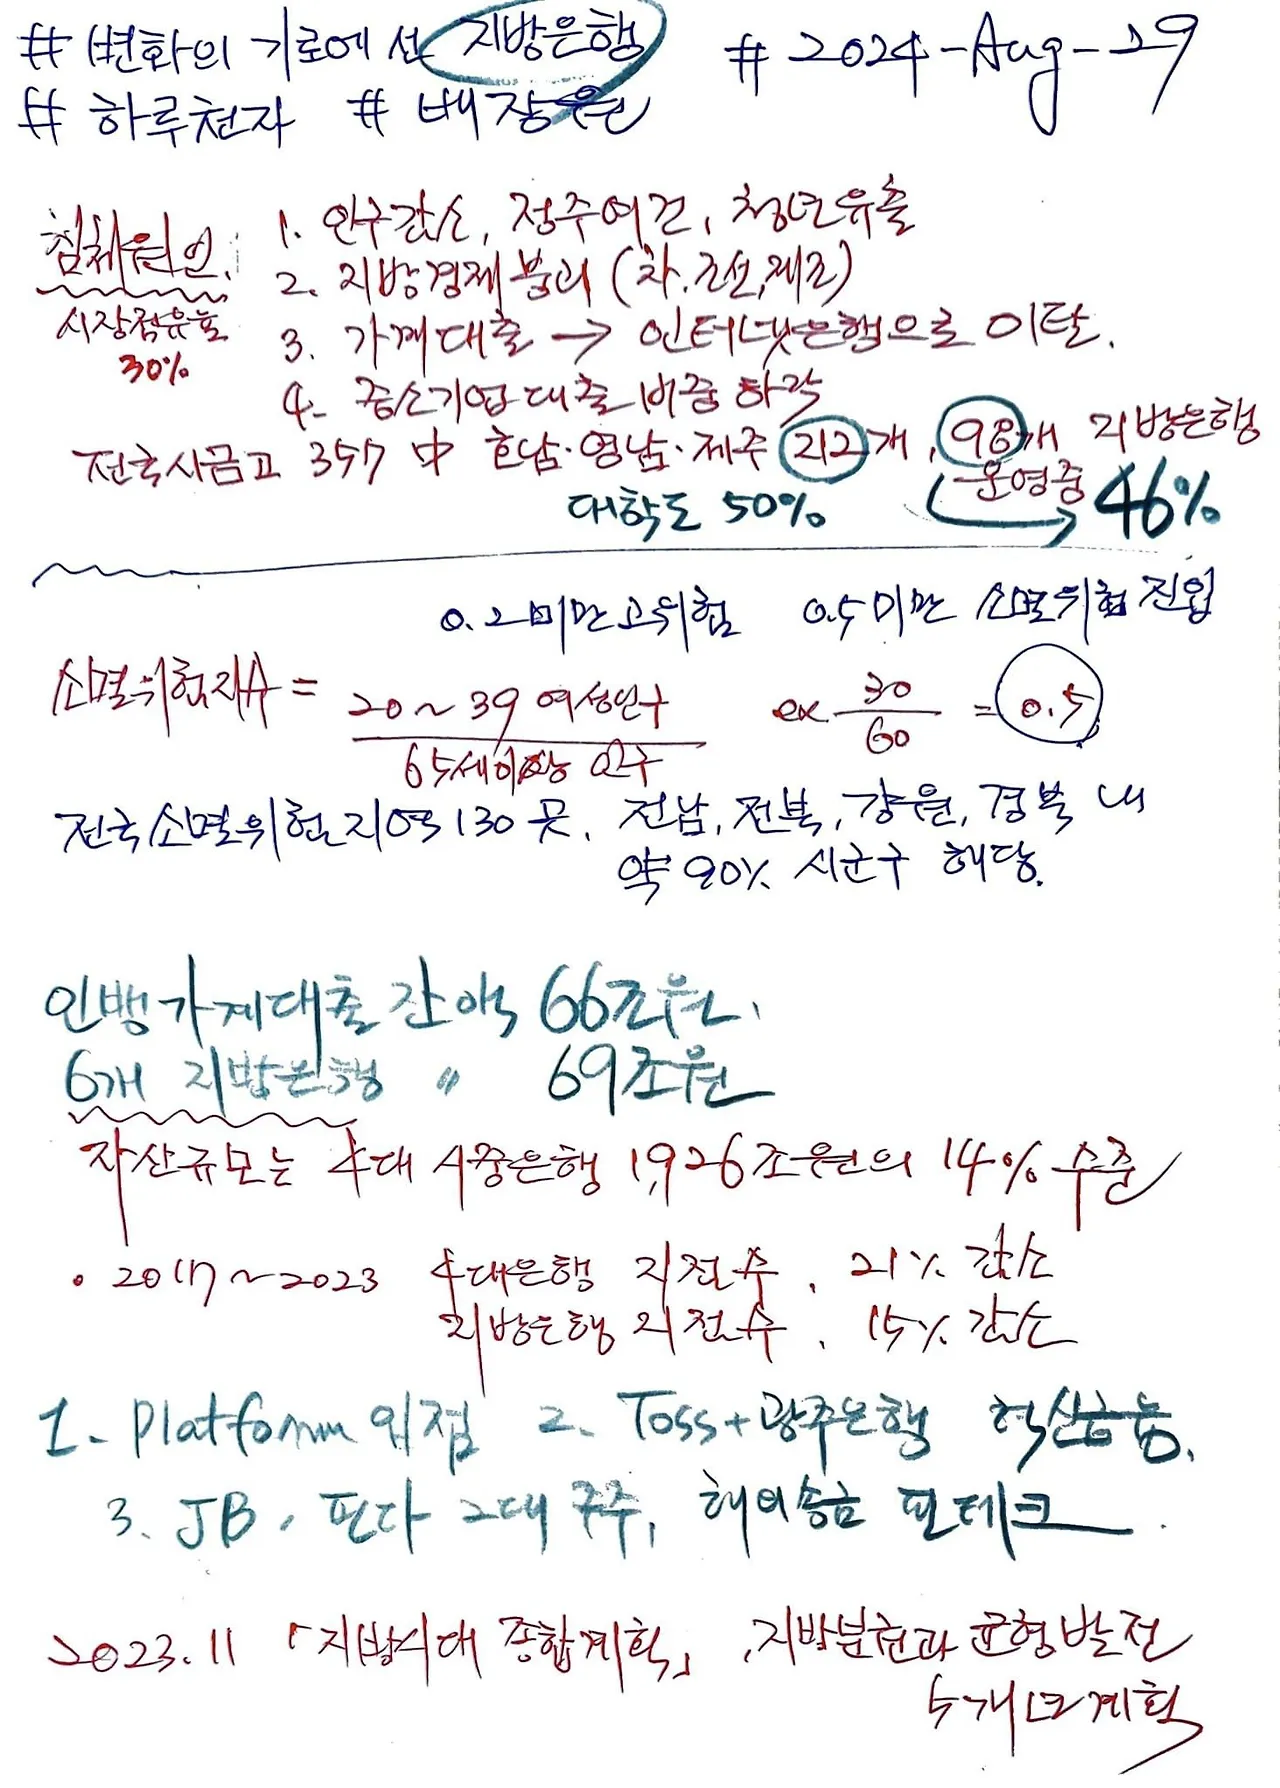 # 변화의 기로에 선 지방은행 # 2024-Aug-29
# 하루천자 # 배장원
침체원인. 1. 인구감소, 정주여건, 청년유출
시장점유율 30%
2. 지방경제 붕괴 (차.조선,제조)
3. 가계대출 → 인터넷은행으로 이탈.
4. 중소기업대출 비중 하락
전국시금고 357 中 호남·영남·제주 212개, 98개 지방은행
운영중
대학도 50% 46%
0.2미만 고위험 0.5미만 소멸위험 진입
소멸위험지수 = 20~39 여성인구 / 65세이상 인구 ex 30/60 = 0.5
전국소멸위험지역 130곳, 전남, 전북, 강원, 경북 내
약 90% 시군구 해당.
인뱅가계대출 잔액 66조원.
6개 지방은행 〃 69조원
자산규모는 4대 시중은행 1,926조원의 14% 수준
· 2017~2023 4대은행 지점수. 21% 감소
지방은행 지점수. 15% 감소
1. Platform 입점 2. Toss+광주은행 혁신금융.
3. JB, 핀다 2대 주주, 해외송금 핀테크.
2023.11 「지방시대 종합계획」, 지방분권과 균형발전
5개년계획